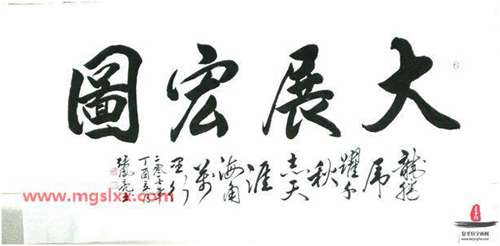 大展宏圖
龍騰
虎
躍千
秋
志天
涯
海角
萬
里行
二零一七年
丁酉
www.mgslxx.com